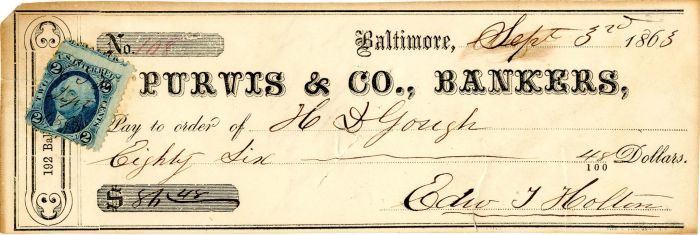 No. 108
Baltimore, Sept 3rd 1863
PURVIS & CO., BANKERS,
Pay to order of H D Gough
Eighty Six 48/100 Dollars.
$ 86.48
Edw T Holton
192 Bal
2 2
U.S. INTER. REV.
CENTS
2 2